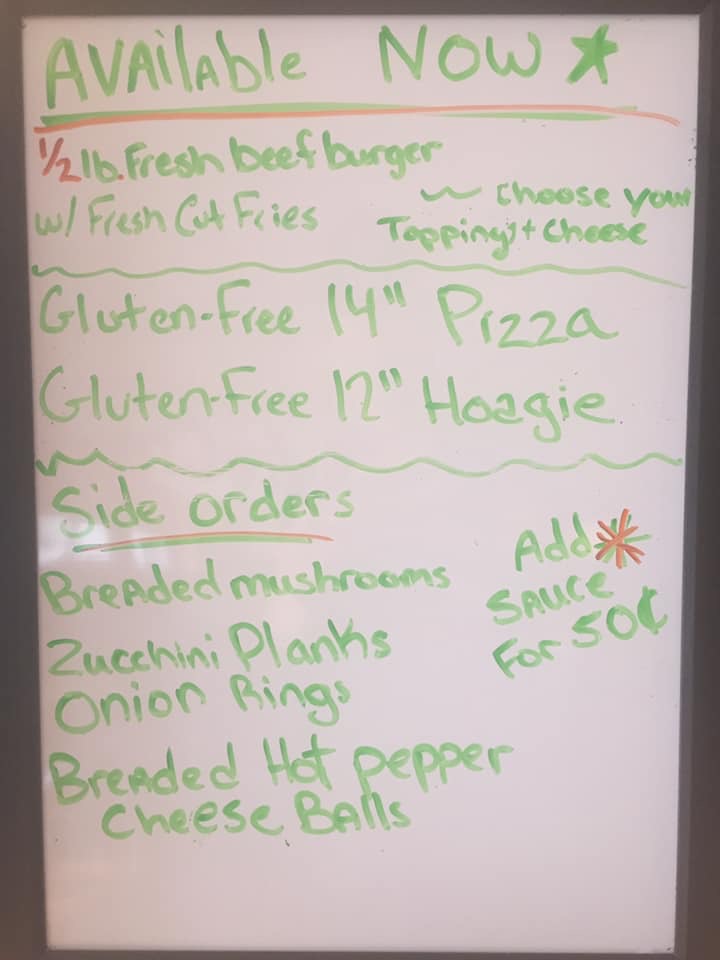 Available Now
1/2 lb. Fresh beef burger
w/ Fresh Cut Fries
~ Choose your
Toppings + Cheese
Gluten-Free 14" Pizza
Gluten-Free 12" Hoagie
Side orders
Breaded mushrooms
Zucchini Planks
Onion Rings
Breaded Hot pepper
Cheese Balls
Add
Sauce
For 50¢